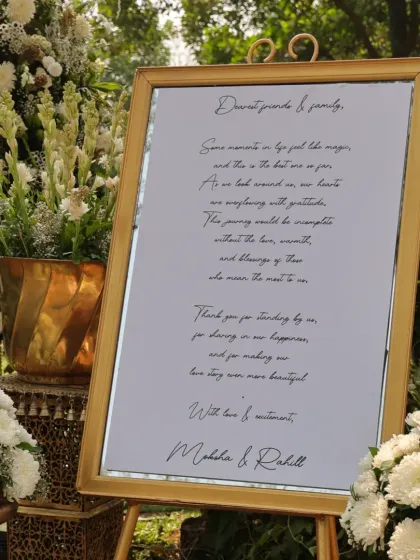 Dearest friends & family,
Some moments in life feel like magic,
and this is the best one so far.
As we look around us, our hearts
are overflowing with gratitude.
This journey would be incomplete
without the love, warmth,
and blessings of those
who mean the most to us.
Thank you for standing by us,
for sharing in our happiness,
and for making our
love story even more beautiful
.
With love & excitement,
Moksha & Rahill